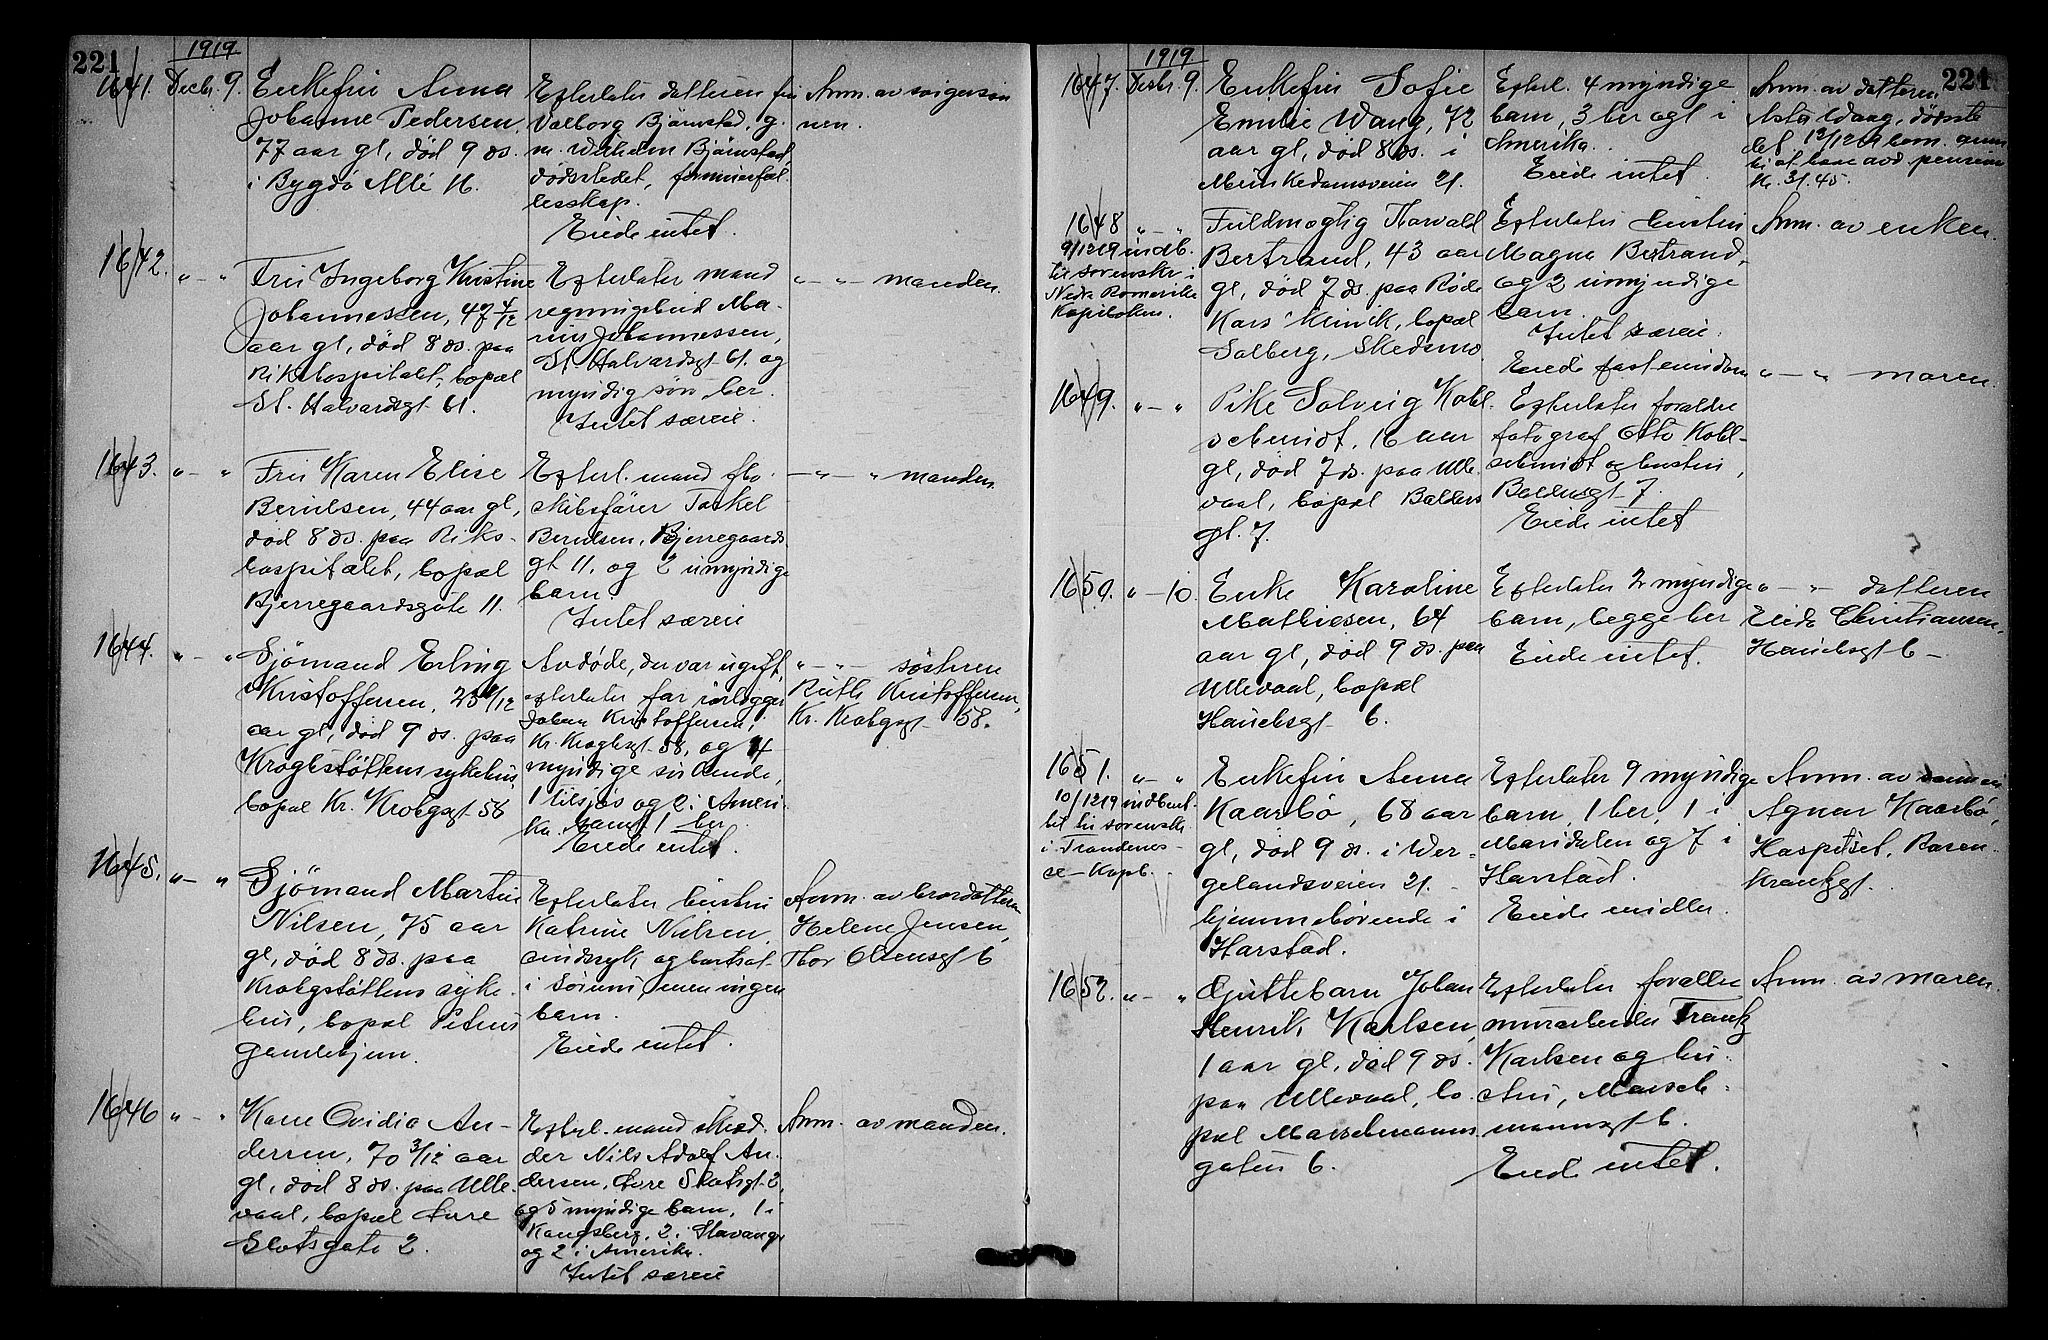 221
1919
1641. Decbr. 9. Enkefru Anna
Johanne Pedersen,
77 aar gl, död 9 ds.
i Bygdö Allé 16.
Efterlater datteren fru
Valborg Bjärnstad, g.
m. Wilhelm Bjärnstad,
dödsstedet, formuesfæl-
lesskap.
Eiede intet.
Anm. av svigersön
nen.
1642. " - " Fru Ingeborg Kristine
Johannessen, 47 4/12
aar gl, död 8 ds. paa
Rikshospitalet, bopæl
St. Halvardsgt 61.
Efterlater mand
regningsbud Ma-
rius Johannessen,
St. Halvardsgt 61. og
myndig sön her.
Intet særeie.
" - " manden.
1643. " - " Fru Karen Elise
Berntsen, 44 aar gl,
död 8 ds. paa Riks-
hospitalet, bopæl
Bjerregaardsgate 11.
Efterl. mand fhv.
skibsförer Torkel
Berntsen, Bjerregaards
gt 11. og 2 umyndige
barn.
Intet særeie
- " - " manden.
1644. " - " Sjömand Erling
Kristoffersen, 25 /12
aar gl, död 9 ds. paa
Kroghstöttens sykehus,
bopæl Kr. Krohgsgt 58
Avdöde, der var ugift,
efterlater far
Johan Kristoffersen,
Kr. Kroghsgt 58, og 4
myndige söskende,
1 tilsjös og 2 i Ameri-
ka samt 1 her.
Eiede intet.
" - " söstren
Ruth Kristoffersen,
Kr. Krohgsgt 58.
1645. " - " Sjömand Martin
Nilsen, 75 aar
gl, död 8 ds. paa
Krohgstöttens syke-
hus, bopæl Petrus
gamlehjem.
Efterlater hustru
Katrine Nilsen,
sindssyk og bortsat
i Sörum, men ingen
barn.
Eiede intet.
Anm. av brordatteren
Helene Jensen,
Thor Olsensgt 6
1646 " - " Kone Ovidia An-
dersen, 70 3/12 aar
gl, död 8 ds. paa Ulle-
vaal, bopæl Övre
Slotsgate 2.
Efterl. mand skræd-
der Nils Adolf An-
dersen, Övre Slotsgt. 2,
og 5 myndige barn, 1 i
Kongsberg, 2 i Stavanger
og 2 i Amerika.
Intet særeie
Anm. av manden.
221
1919
1647. Decbr. 9. Enkefru Sofie
Emilie Wang, 72
aar gl, död 8 ds. i
Munkedamsveien 21.
Efterl. 4 myndige
barn, 3 her og 1 i
Amerika.
Eiede intet.
Anm. av datteren
Asta Waag, dödsste
det. 12/12 19 bem.
til at hæve avd. pension
kr. 31.45.
1648 " - "
9/12 19 indb.
til sorenskr. i
Nedre Romerike
Kopiboken.
Fuldmægtig Thorvald
Bertrand, 43 aar
gl, död 7 ds. paa Röde
Kors' Klinik, bopæl
Solberg, Skedsmo
Efterlater hustru
Magna Bertrand,
og 2 umyndige
barn.
Intet særeie.
Eiede fast eiendom
Anm. av enken.
1649. " - " Pike Solveig Kohl-
schmidt, 16 aar
gl, död 7 ds. paa Ulle-
vaal, bopæl Balders
gt. 7.
Efterlater forældre
fotograf Otto Kohl-
schmidt og hustru,
Baldersgt 7.
Eiede intet
" - " moren.
1650. " - 10. Enke Karoline
Mathiesen, 64
aar gl, död 9 ds. paa
Ullevaal, bopæl
Hauchsgt 6.
Efterlater 2 myndige
barn, begge her
Eiede intet.
" - " datteren
Christiansen,
Hauchsgt 6 -
1651. " - "
10/12 19 indberet-
tet til sorenskr.
i Trondenes
se - Kopb.
Enkefru Anna
Kaarbö, 68 aar
gl, död 9 ds. i Wer-
gelandsveien 21.
hjemmehörende i
Harstad.
Efterlater 9 myndige
barn, 1 her, 1 i
Maridalen og 7 i
Harstad.
Eiede midler.
Anm. av sönnen
Agnar Kaarbö,
Hospitset, Rosen-
krantzgt.
1652. " - " Guttebarn Johan
Henrik Karlsen,
1 aar gl, död 9 ds.
paa Ullevaal, bo-
pæl Marselienuns
gaten 6.
Efterlater forældre
murarbeider Frantz
Karlsen og hu-
stru,
6.
Eiede intet.
Anm. av moren.